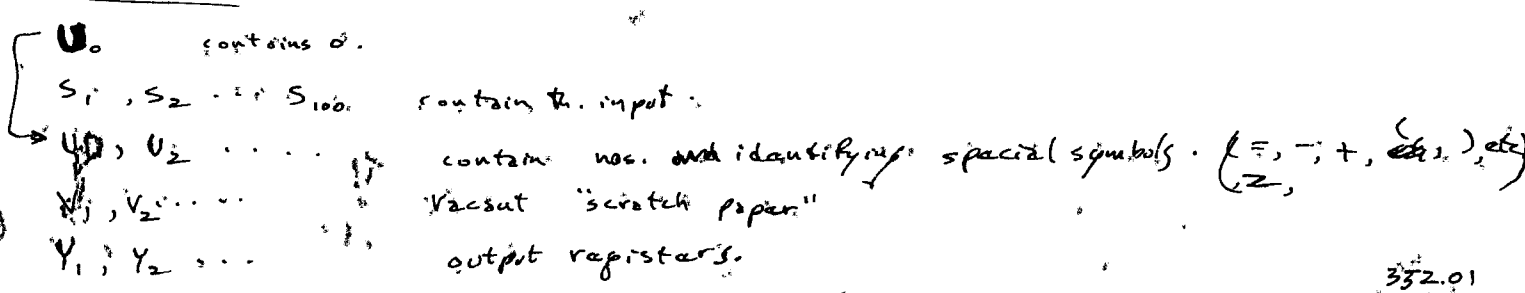 U₀ contains 0.
S₁, S₂ .... S₁₀₀. contain th. input.
U₂ ..... contain nos. identifying special symbols. (=, -, +, (, ), etc)
Σ,
V₁, V₂ ..... Vacant "scratch paper"
Y₁, Y₂ ... output registers.
332.01